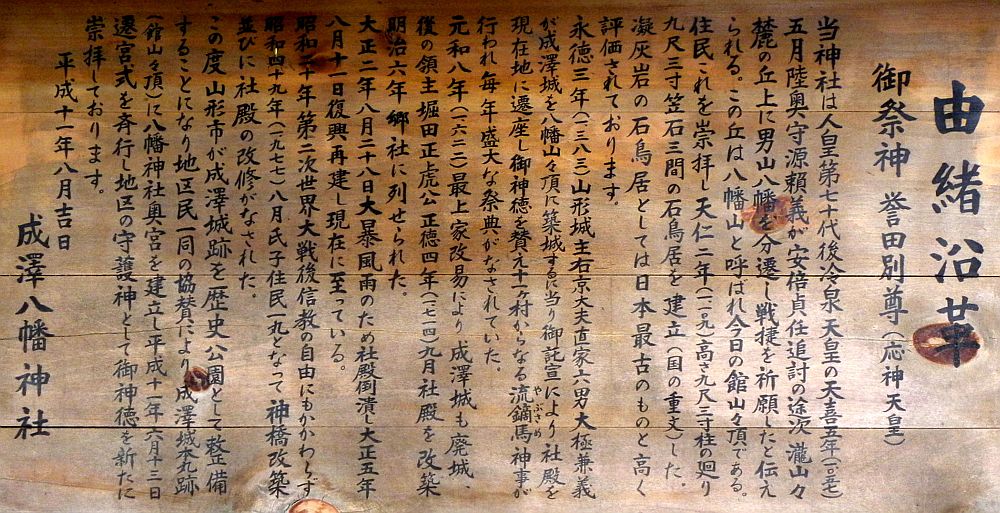 由緒沿革
御祭神 誉田別尊(応神天皇)
当神社は人皇第七十代後冷泉天皇の天喜五年(一〇五七)
五月陸奥守源頼義が安倍貞任追討の途次瀧山々
麓の丘上に男山八幡を分遷し戦捷を祈願したと伝え
られる。この丘は八幡山と呼ばれ今日の館山々頂である。
住民これを崇拝し天仁二年(一一〇九)高さ九尺三寸柱の廻り
九尺三寸笠石三間の石鳥居を建立(国の重文)した。
凝灰岩の石鳥居としては日本最古のものと高く
評価されております。
永徳三年(一三八三)山形城主右京大夫直家六男大極兼義
が成澤城を八幡山々頂に築城するに当り御託宣により社殿を
現在地に遷座し御神徳を賛え十ヶ村からなる流鏑馬神事が
やぶさめ
行われ毎年盛大な祭典がなされていた。
元和八年(一六二二)最上家改易により成澤城も廃城、
後の領主堀田正虎公正徳四年(一七一四)九月社殿を改築
明治六年郷社に列せられた。
大正二年八月二十八日大暴風雨のため社殿倒潰し大正五年
八月十一日復興再建し現在に至っている。
昭和二十年第二次世界大戦後信教の自由にもかかわらず
昭和四十九年(一九七七)八月氏子住民一丸となって神橋改築
並びに社殿の改修がなされた。
この度山形市が成澤城跡を歴史公園として整備
することになり地区民一同の協賛により成澤城本丸跡
(館山々頂)に八幡神社奥宮を建立し平成十一年六月十三日
遷宮式を斉行し地区の守護神として御神徳を新たに
崇拝しております。
平成十一年八月吉日
成澤八幡神社